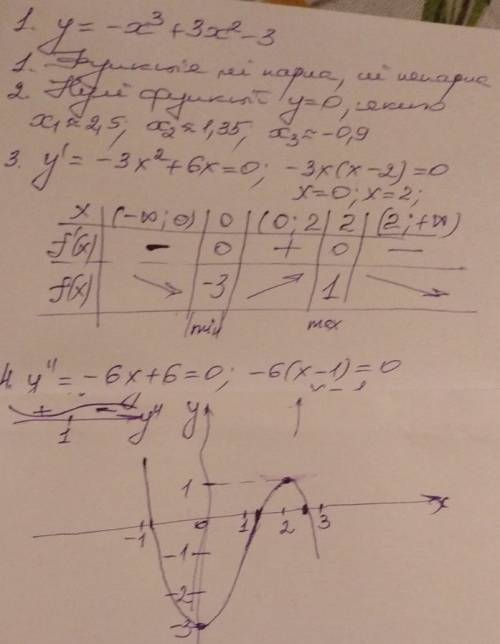 1. y = -x³ + 3x² - 3
1. Функція ні парна, ні непарна
2. Нулі функції y=0, якщо
x₁ ≈ 2,5; x₂ ≈ 1,35, x₃ ≈ -0,9
3. y' = -3x² + 6x = 0; -3x(x-2) = 0
x=0; x=2;
x (-∞; 0) 0 (0; 2 2 (2; +∞)
f'(x) - 0 + 0 -
f(x) ↘ -3 ↗ 1 ↘
min max
4. y'' = -6x + 6 = 0; -6(x-1) = 0
+ - y''
1
y
1
x
-1 0 1 2 3
-1
-2
-3